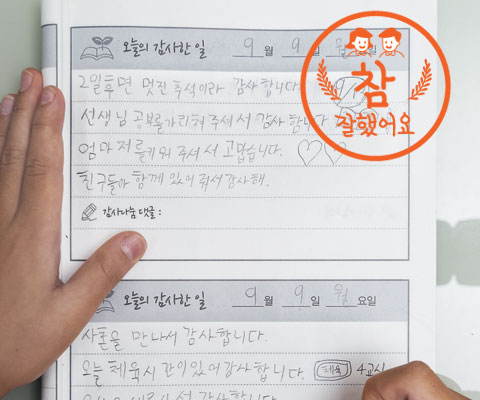 오늘의 감사한 일 9월 9일 월요일
2일후면 멋진 추석이라 감사합니다.
선생님 공부를가리켜 주셔서 감사합니다
엄마 저를 키워 주셔서 고맙습니다.
친구들아 함께 있어 줘서 감사해.
감사나눔 댓글:
참
잘했어요
오늘의 감사한 일 9월 9일 월요일
사돌을 만나서 감사합니다.
오늘 체육시간이있어 감사합니다. 체육 4교시
감사합니다.